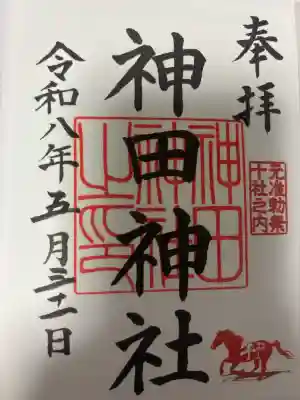 奉拝
元准勅祭
十社之内
神田神社
神田
神社
之印
令和八年五月三十一日